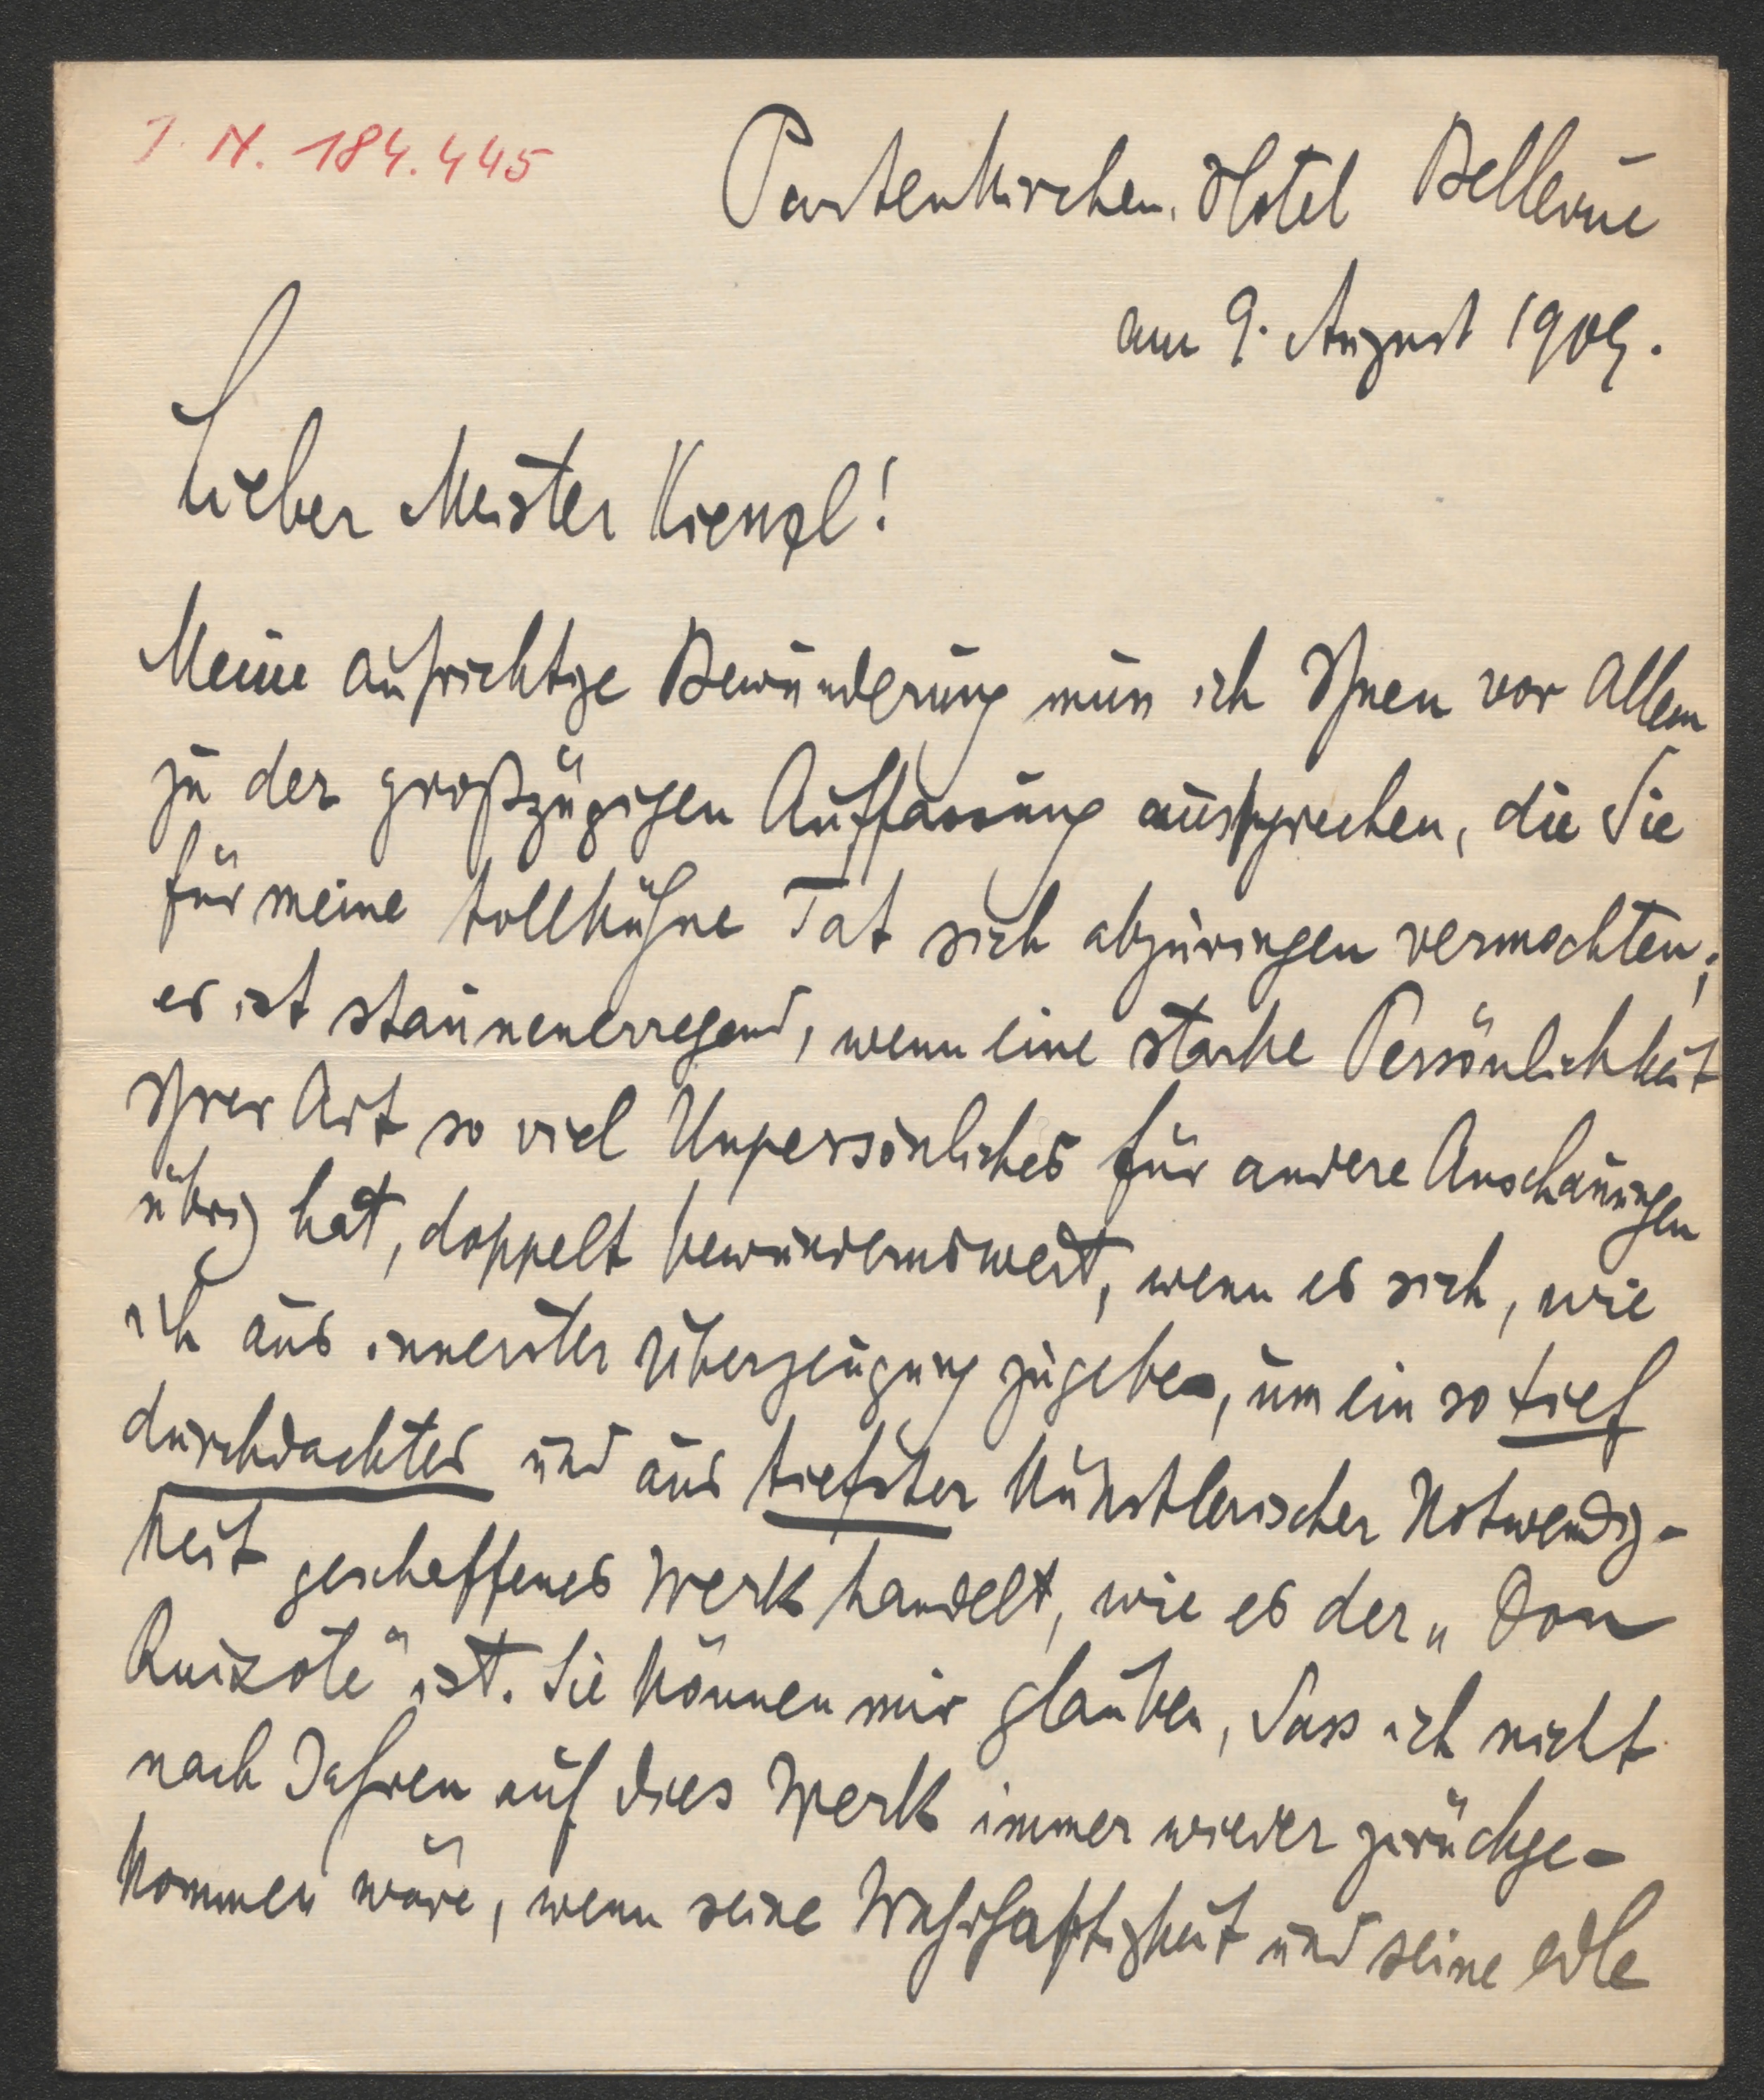 J. N. 184.445
Partenkirchen, Hotel Bellevue
am 9. August 1909.
Lieber Meister Kienzl!
Meine aufrichtige Bewunderung muss ich Ihnen vor Allem
zu der großzügigen Auffassung aussprechen, die Sie
für meine tollkühne Tat sich abzuringen vermochten;
es ist staunenerregend, wenn eine starke Persönlichkeit
Ihrer Art so viel Unpersönliches für andere Anschauungen
übrig hat, doppelt bewundernswert, wenn es sich, wie
ich aus innerster Überzeugung zugebe, um ein so tief
durchdachtes und aus tiefster künstlerischer Notwendig-
keit geschaffenes Werk handelt, wie es der „Don
Quixote“ ist. Sie können mir glauben, dass ich nicht
nach Jahren auf dies Werk immer wieder zurückge-
kommen wäre, wenn seine Wahrhaftigkeit und seine edle